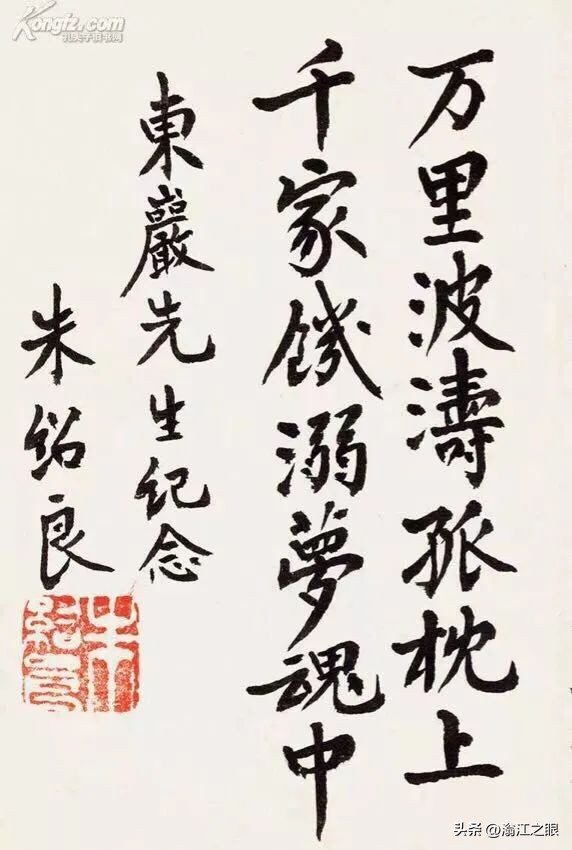 万里波濤孤枕上
千家饑溺夢魂中
東巖先生纪念
朱绍良
朱绍良
Kongfz.com
孔夫子旧书网
头条@滃江之眼